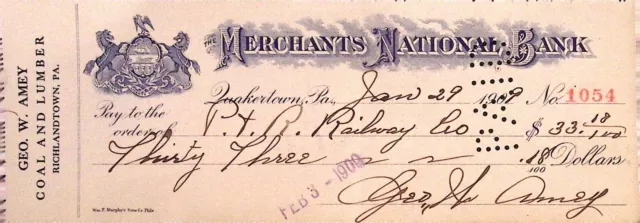 GEO. W. AMEY
COAL AND LUMBER
RICHLANDTOWN, PA.
THE MERCHANTS NATIONAL BANK
Quakertown, Pa., Jan 29 1909 No. 1054
Pay to the
order of P. & R. Railway Co $ 33.18/100
Thirty Three ~ ~ .18/100 Dollars
FEB 3 - 1909
Geo. W. Amey
Wm. F. Murphy's Sons Co. Phila.